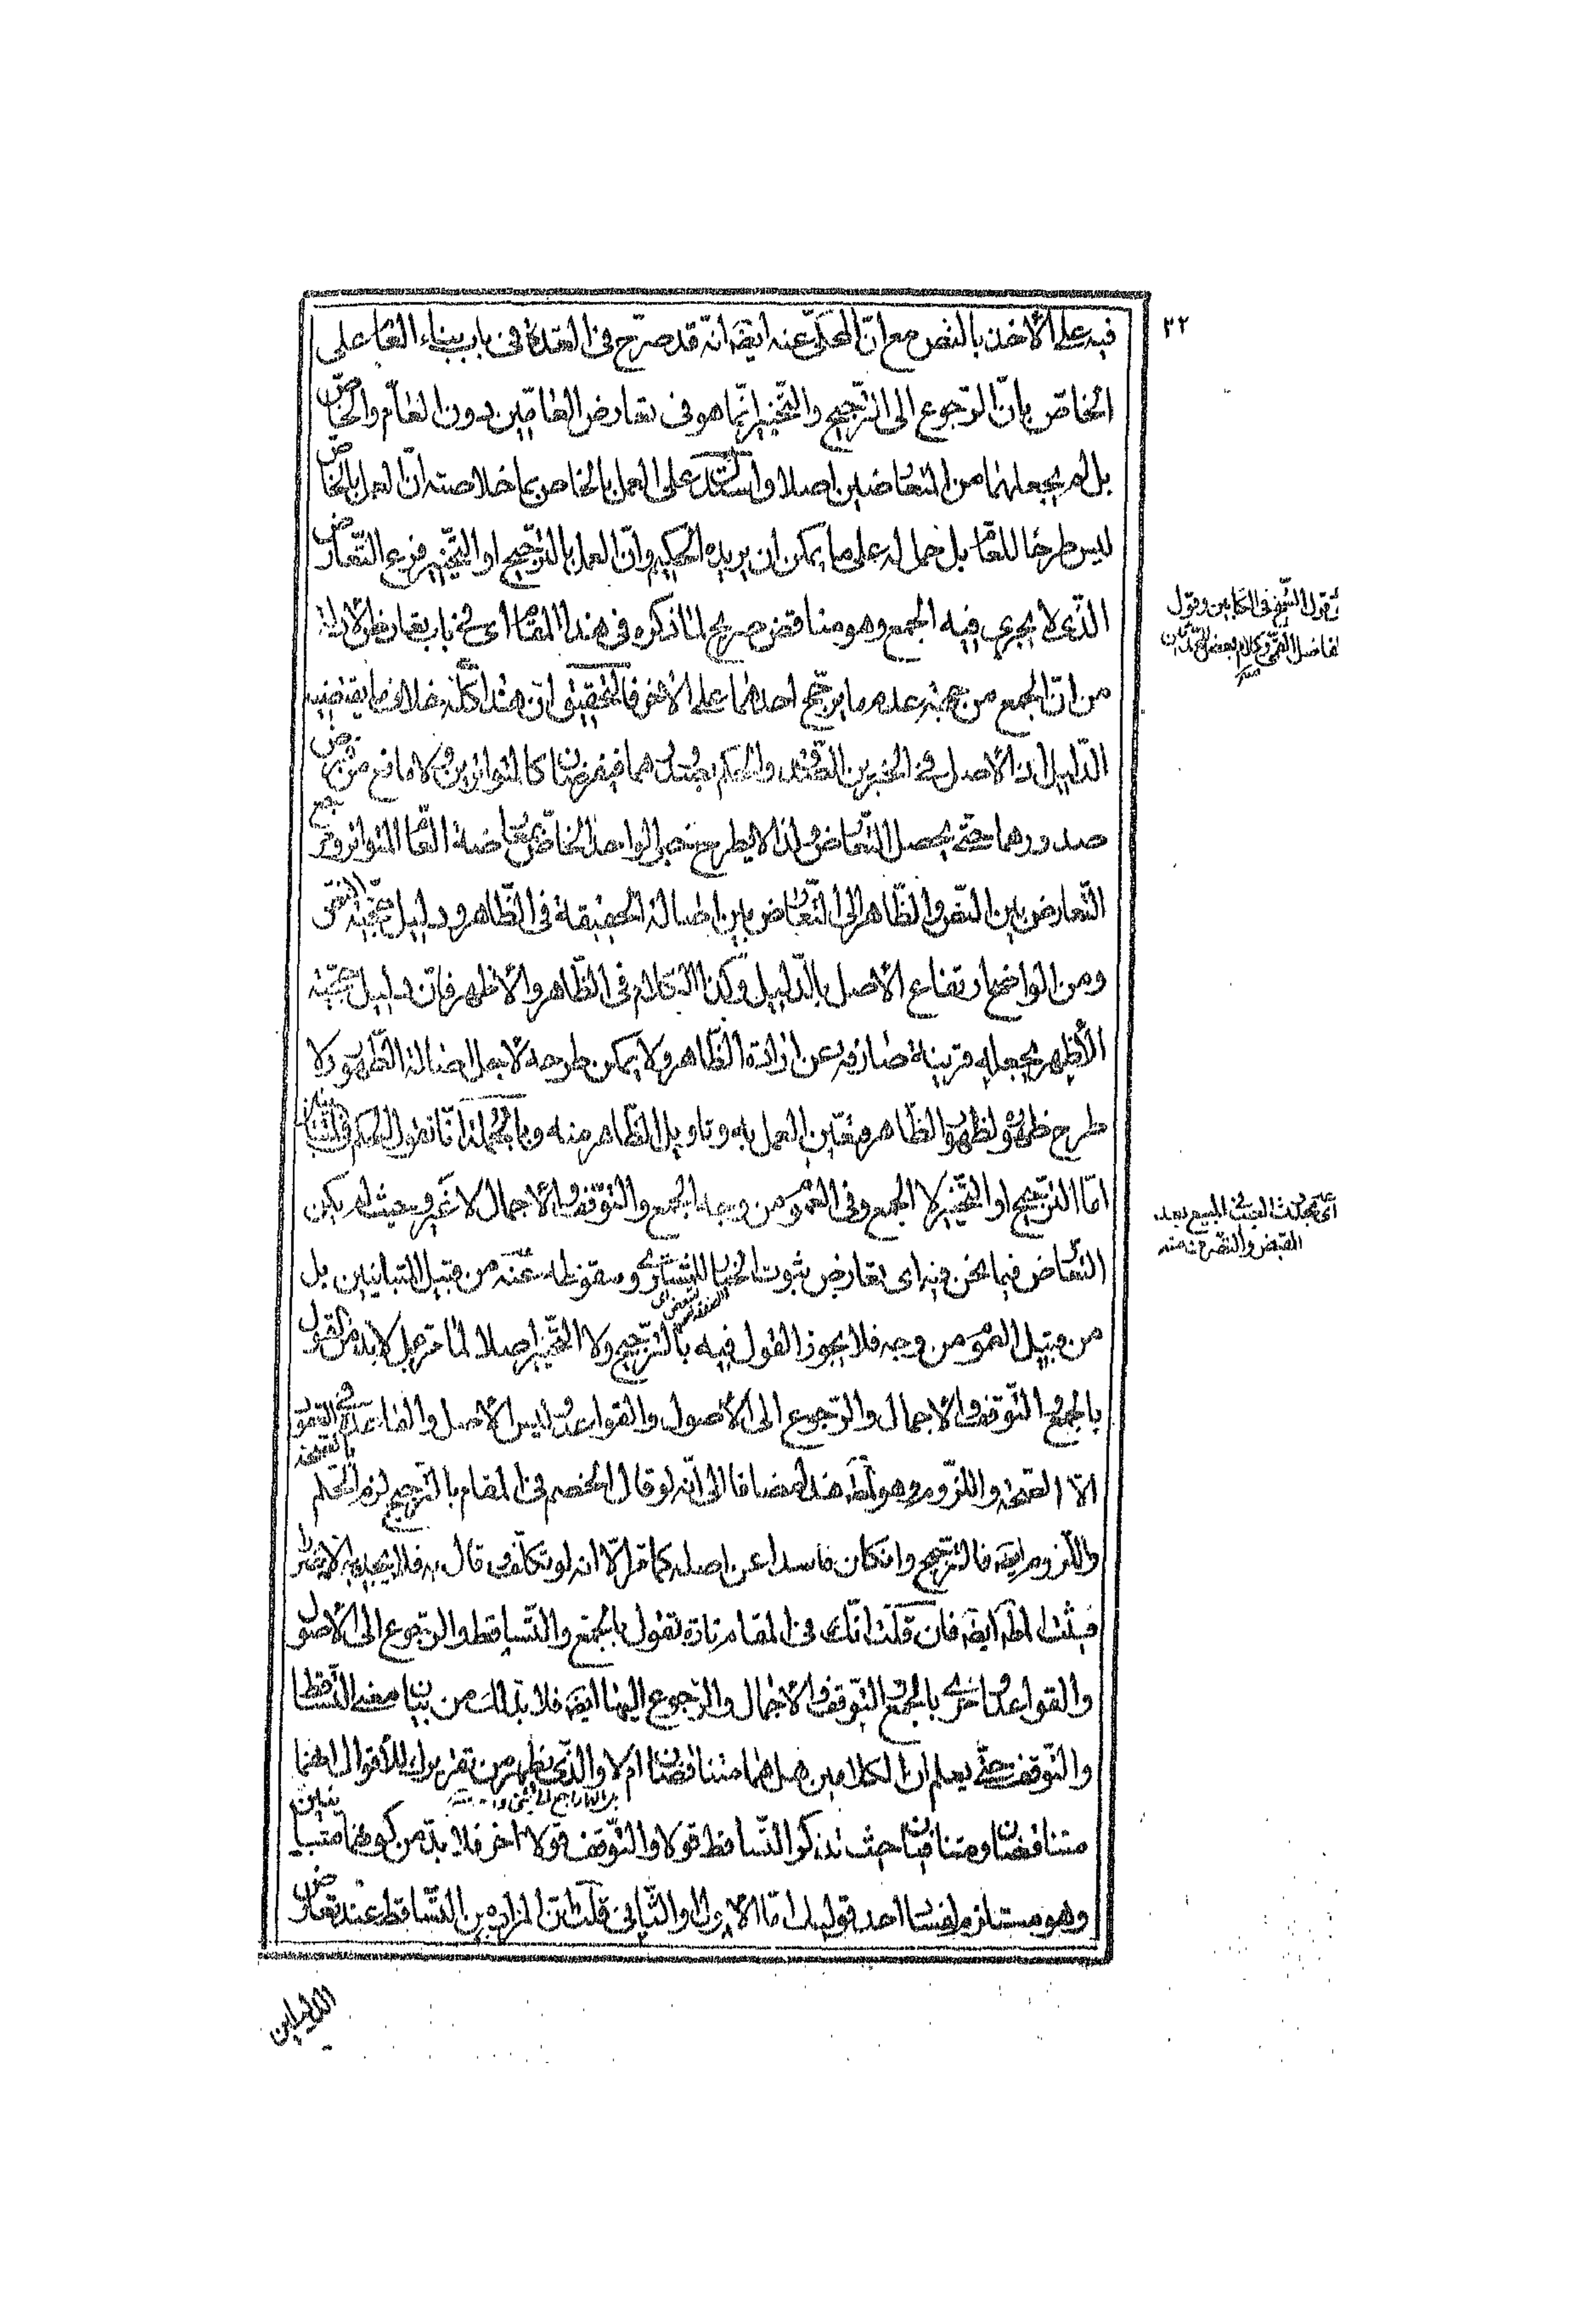 ٣٢
فيه على الأخذ بالنص مع ان المحكى عنه ايضه انه قد صرّح فى العدة فى باب بناء العام على
الخاص بان الرجوع الى الترجيح والتخيير انما هو فى تعارض العامّين دون العام والخاص
بل لم يجعلهما من المتعارضين اصلا واستدل على العمل بالخاص بما خلاصته ان العمل بالخاص
ليس طرحا للعام بل حمل له على ما يمكن ان يريده الحكيم وان العمل بالترجيح او التخيير فرع التعارض
الذى لا يجرى فيه الجمع وهو مناقض صريح لما ذكره فى هذا المقام اى فى باب تعارض الادلة
من ان الجمع من جهة عدم ما يرجح احدهما على الاخر فالتحقيق ان هذا كله خلاف ما يقتضيه
الدليل اذ الاصل فى الخبرين الصدق والحكم بصدورهما فيفرضان كالمتواترين ولا مانع من فرض
صدورهما حتى يحصل التعارض ولذا لا يطرح خبر الواحد الخاص بمعارضة العام المتواتر ومرجع
التعارض بين النص والظاهر الى التعارض بين اصالة الحقيقة فى الظاهر ودليل حجية النص
ومن الواضح ارتفاع الاصل بالدليل وكذا الكلام فى الظاهر والاظهر فان دليل حجية
الأظهر يجعله قرينة صارفة عن ارادة الظاهر ولا يمكن طرحه لاجل اصالة الظهور ولا
طرح ظهوره لظهور الظاهر فتعين العمل به وتاويل الظاهر منه وبالجملة انا نقول الحكم فى المتباينين
اما الترجيح او التخيير لا الجمع وفى العموم من وجه الجمع والتوقف والاجمال لا غير وحيث لم يكن
التعارض فيما نحن فيه اى تعارض ثبوت الخيار للمشترى وسقوطه عنه من قبيل المتباينين بل
من قبيل العموم من وجه فلا يجوز القول فيه بالترجيح ولا التخيير اصلا لما مر بل لا بد من القول
بالجمع والتوقف والاجمال والرجوع الى الاصول والقواعد وليس الاصل والقاعدة فى العقود
الا الصحة واللزوم وهو المط هذا مضافا الى انه لو قال الخصم فى المقام بالترجيح لزم الحكم بالصحة
واللزوم ايضه فالترجيح وان كان فاسدا عن اصله كما مر الا انه لو تكلّف وقال به فلا يجديه الا
فيثبت المط ايضه فان قلت انك فى المقام تارة تقول بالجمع والتساقط والرجوع الى الاصول
والقواعد واخرى بالجمع والتوقف والاجمال والرجوع اليها ايضه فلا بد لك من بيان معنى التساقط
والتوقف حتى يعلم ان الكلامين هل هما متناقضان ام لا والذى يظهر من تقريرك للأقوال انهما
متناقضان ومتنافيان حيث تذكر التساقط قولا والتوقف قولا اخر فلا بد من كونهما متباينين
وهو مستلزم لفساد احد قوليك اما الاول او الثانى قلت ان المراد من التساقط عند تعارض
الدليلين
كقول الشيخ فى الكتابين وقول
الفاضل القمى وكلام بعض
اى بحدوث العيب فى المبيع بعد
القبض والتصرف منه